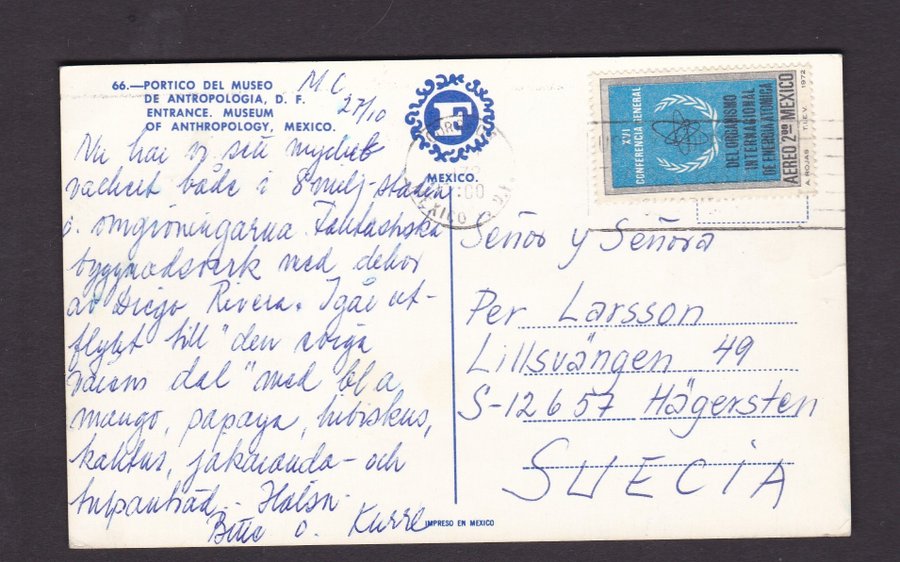 66.—PORTICO DEL MUSEO
DE ANTROPOLOGIA, D. F.
ENTRANCE. MUSEUM
OF ANTHROPOLOGY, MEXICO.
M C
27/10
Nu har vi sett mycket
vackert både i 8 milj-staden
o. omgivningarna. Fantastiska
byggnadsverk med dekor
av Diego Rivera. Igår ut-
flykt till "den eviga
vårens dal" med bl a
mango, papaya, hibiskus,
kaktus, jakaranda- och
tulpanträd. Hälsn.
o. Kurre
E
MEXICO.
MEXICO D.F.
XVI
CONFERENCIA GENERAL
DEL ORGANISMO
INTERNACIONAL
DE ENERGIA ATOMICA
AEREO 2.00 MEXICO
A. ROJAS T.I.E.V. 1972
Señor y Señora
Per Larsson
Lillsvängen 49
S-12657 Hägersten
SUECIA
IMPRESO EN MEXICO